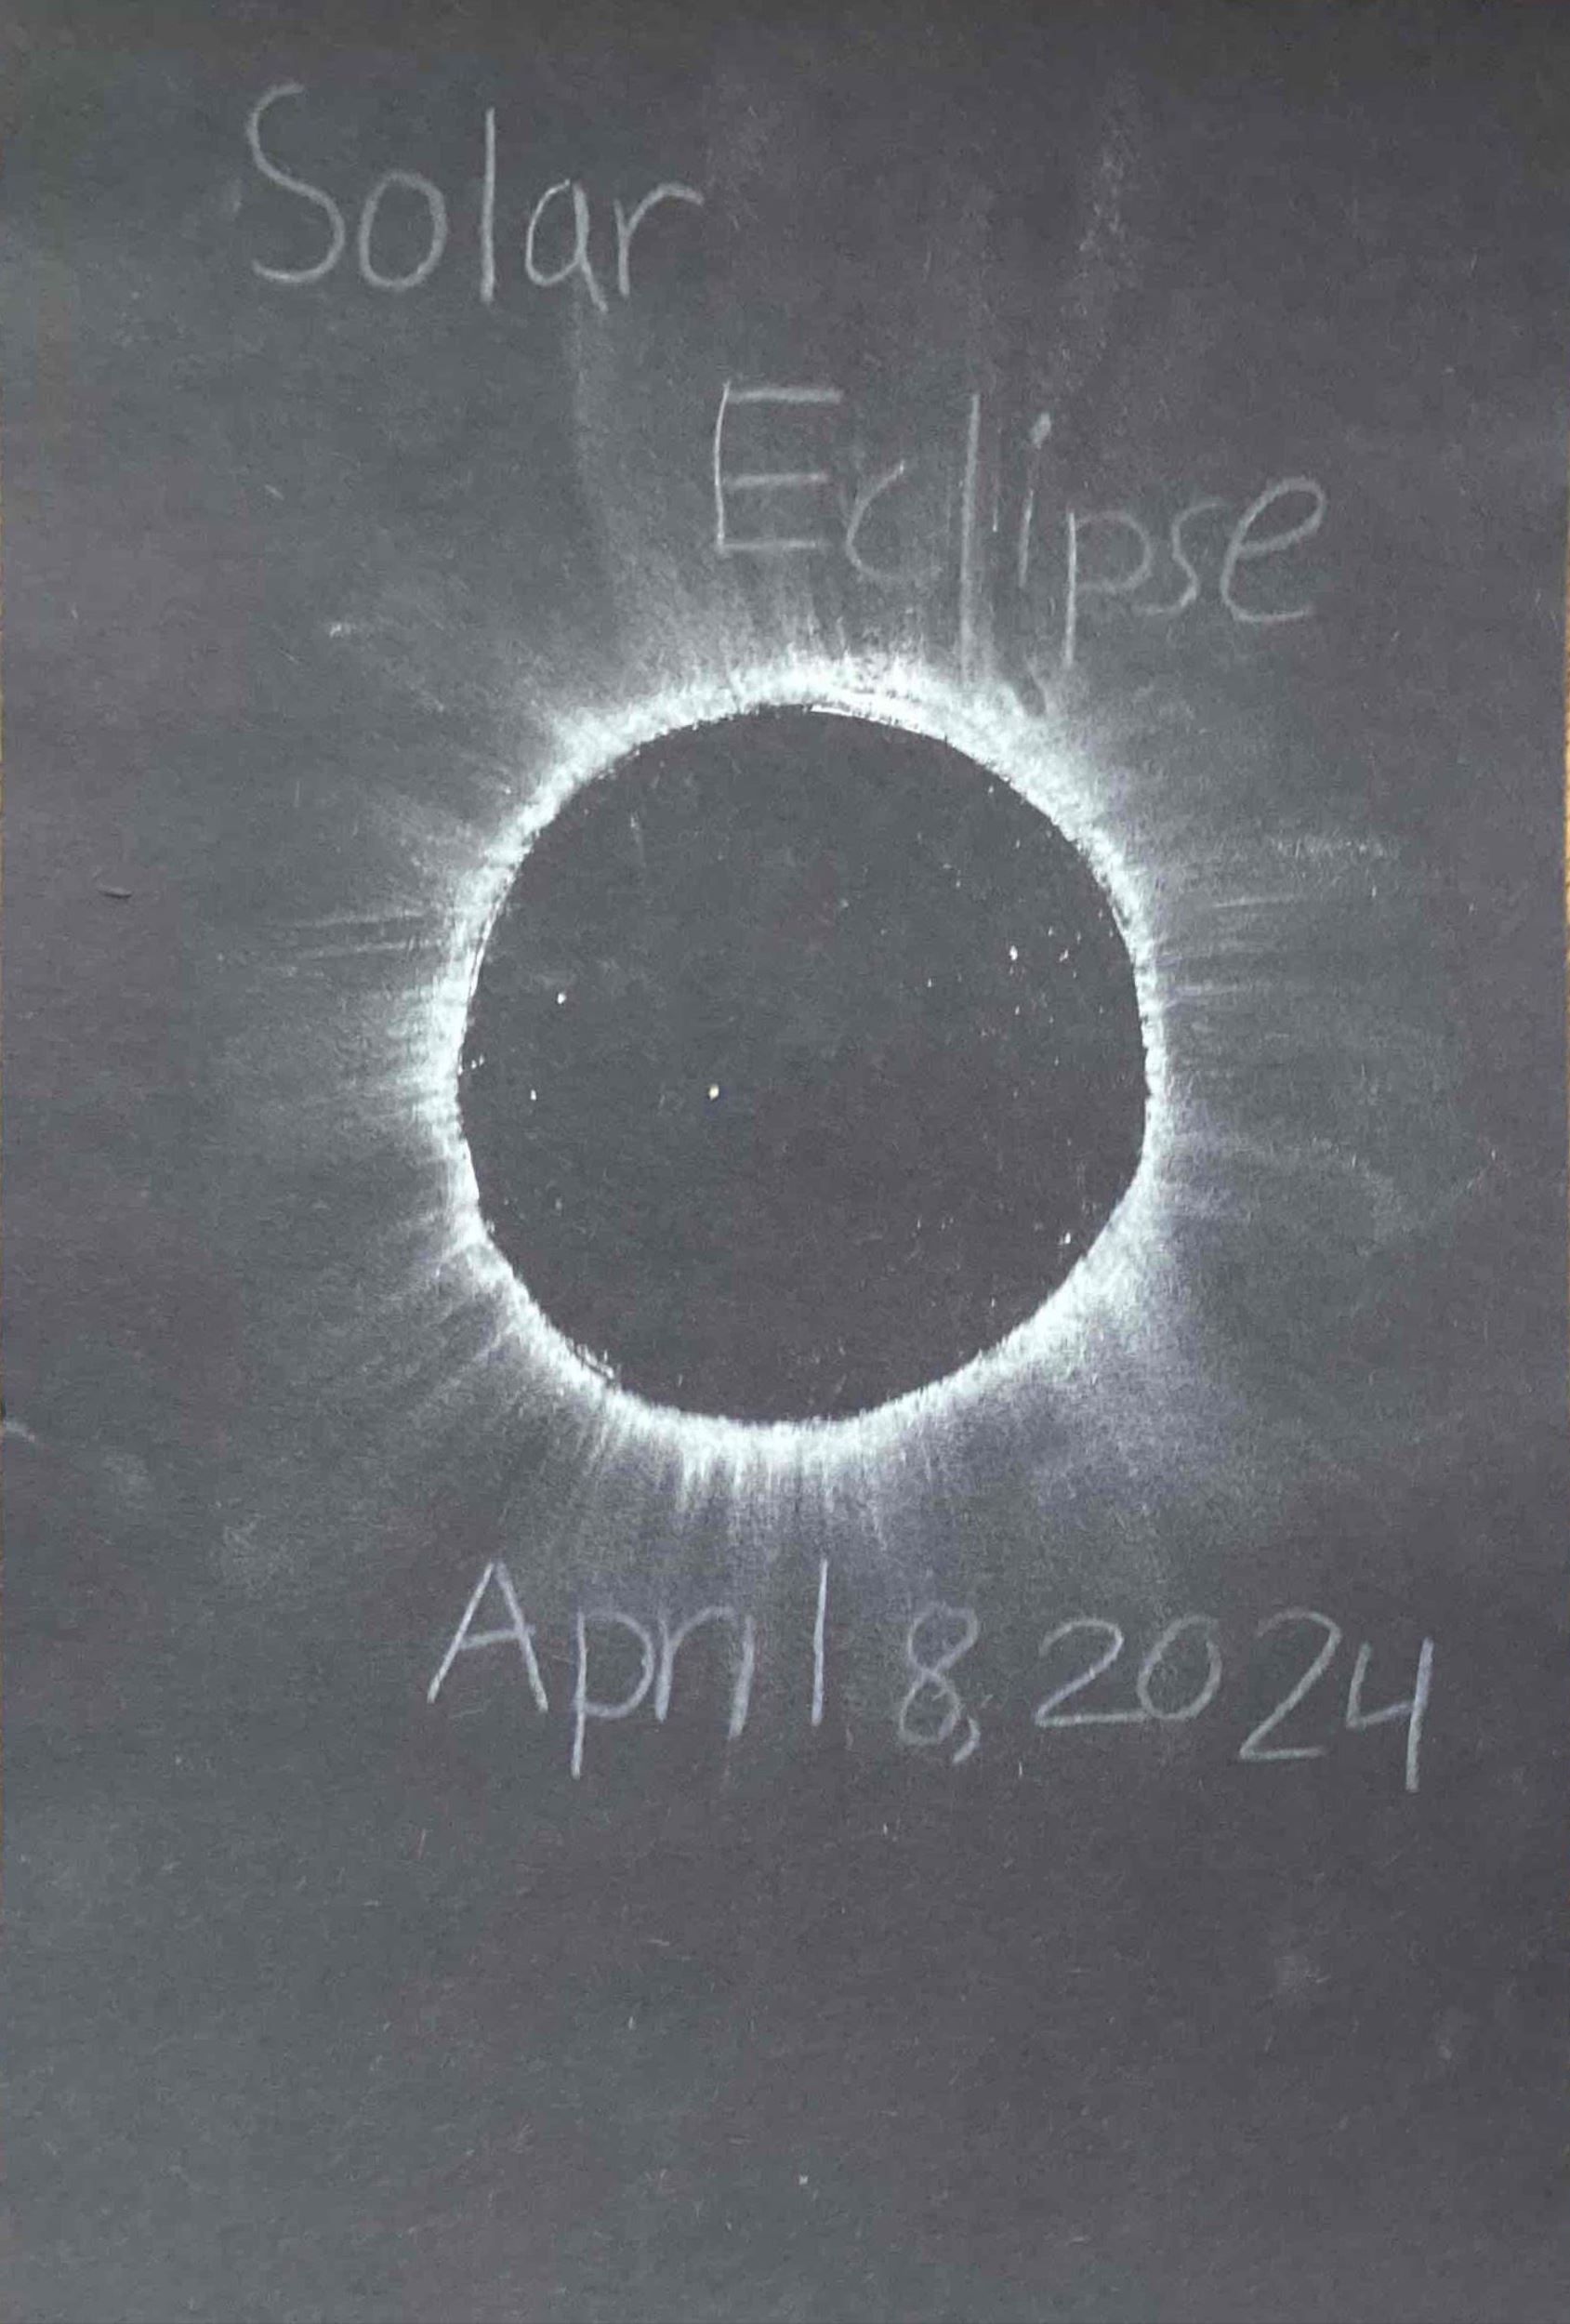 Solar
Eclipse
April 8, 2024